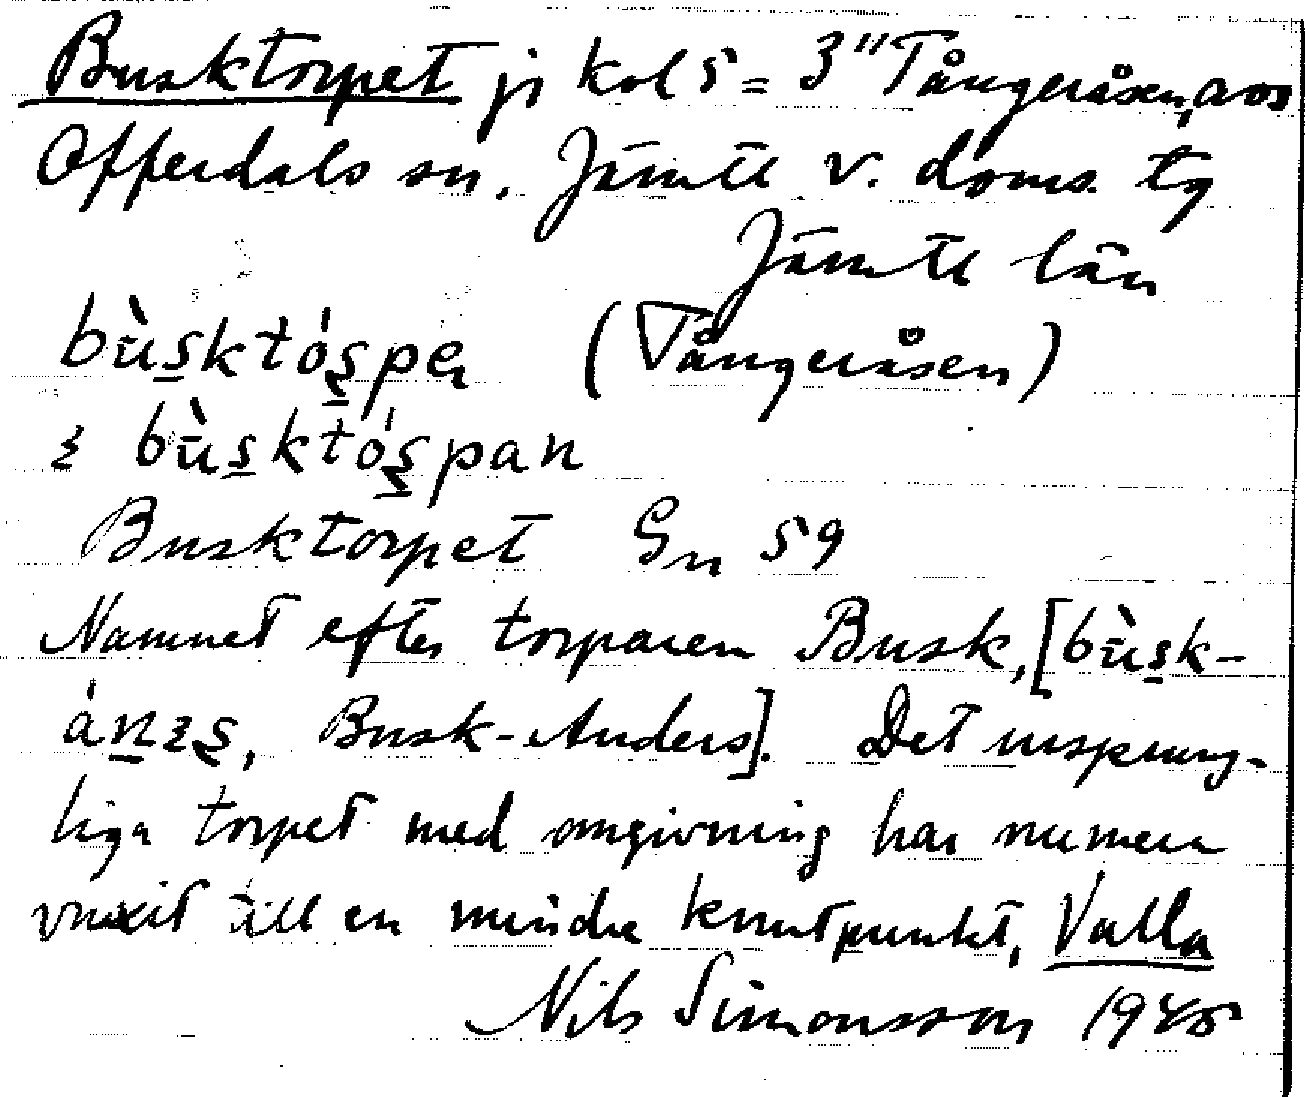 Busktorpet js kol 5 = 3" Tångeråsen, avs
Offerdals sn. Jämtl v. doms. tg
Jämtl län
bùsktós̨pe (Tångeråsen)
bùsktós̨pan
Busktorpet Gn 59
Namnet efter torparen Busk, [bùsk-
Busk-Anders]. Det ursprung-
liga torpet med omgivning har numera
vuxit till en mindre knutpunkt, Valla
Nils Simonsson 1945